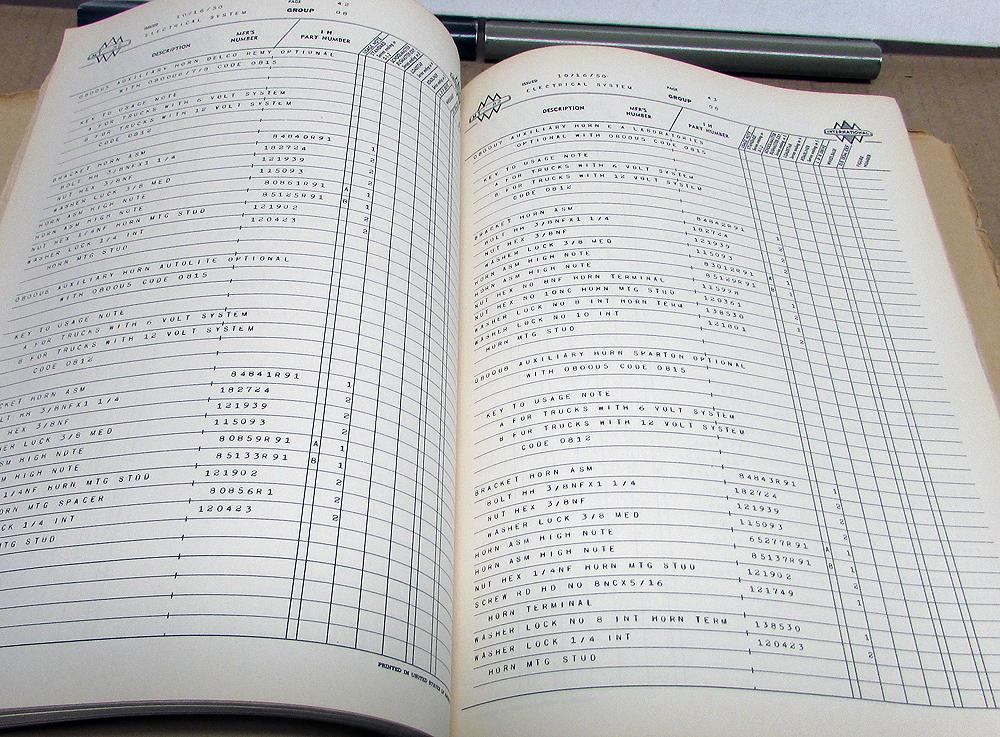 ISSUED 10/16/50 PAGE 42
ELECTRICAL SYSTEM GROUP 08
DESCRIPTION MFR'S NUMBER I H PART NUMBER
08000S AUXILIARY HORN DELCO REMY OPTIONAL
WITH 08000S/7/8 CODE 0815
KEY TO USAGE NOTE
A FOR TRUCKS WITH 6 VOLT SYSTEM
FOR TRUCKS WITH 12 VOLT SYSTEM
CODE 0812
BRACKET HORN ASM 84840R91 1
BOLT HH 3/8NFX1 1/4 182724 2
NUT HEX 3/8NF 121939 2
WASHER LOCK 3/8 MED 115093 2
HORN ASM HIGH NOTE 80861R91 A 1
HORN ASM HIGH NOTE 85125R91 B 1
NUT HEX 1/4NF HORN MTG STUD 121902 2
WASHER LOCK 1/4 INT 120423 2
HORN MTG STUD
AUXILIARY HORN AUTOLITE OPTIONAL
WITH 08000S CODE 0815
KEY TO USAGE NOTE
A FOR TRUCKS WITH 6 VOLT SYSTEM
B FOR TRUCKS WITH 12 VOLT SYSTEM
CODE 0812
CKET HORN ASM 84841R91 1
LT HH 3/8NFX1 1/4 182724 2
HEX 3/8NF 121939 2
HER LOCK 3/8 MED 115093 2
SM HIGH NOTE 80859R91 A 1
SM HIGH NOTE 85133R91 B 1
1/4NF HORN MTG STUD 121902 2
RN MTG SPACER 80856R1 2
CK 1/4 INT 120423 2
TG STUD
PRINTED IN UNITED STATES
ISSUED 10/16/50 PAGE 43
ELECTRICAL SYSTEM GROUP 08
DESCRIPTION MFR'S NUMBER I H PART NUMBER
INTERNATIONAL
AUXILIARY HORN E A LABORATORIES
OPTIONAL WITH 08000S CODE 0812
KEY TO USAGE NOTE
A FOR TRUCKS WITH 6 VOLT SYSTEM
B FOR TRUCKS WITH 12 VOLT SYSTEM
CODE 0812
BRACKET HORN ASM 84842R91
BOLT HH 3/8NFX1 1/4 182724
NUT HEX 3/8NF 121939
WASHER LOCK 3/8 MED 115093
HORN ASM HIGH NOTE 83012R91
HORN ASM HIGH NOTE 85129R91
NUT HEX NO 8NF HORN TERMINAL 115998
NUT HEX NO 10NC HORN MTG STUD 120361
WASHER LOCK NO 8 INT HORN TERM 138530
WASHER LOCK NO 10 INT 121801
HORN MTG STUD
AUXILIARY HORN SPARTON OPTIONAL
WITH 08000S CODE 0815
KEY TO USAGE NOTE
A FOR TRUCKS WITH 6 VOLT SYSTEM
B FOR TRUCKS WITH 12 VOLT SYSTEM
CODE 0812
BRACKET HORN ASM 84843R91 1
BOLT HH 3/8NFX1 1/4 182724 2
NUT HEX 3/8NF 121939 2
WASHER LOCK 3/8 MED 115093 2
HORN ASM HIGH NOTE 65277R91 A 1
HORN ASM HIGH NOTE 85137R91 B 1
NUT HEX 1/4NF HORN MTG STUD 121902 2
SCREW RD HD NO 8NCX5/16 121749 1
HORN TERMINAL
WASHER LOCK NO 8 INT HORN TERM 138530 1
WASHER LOCK 1/4 INT 120423 2
HORN MTG STUD